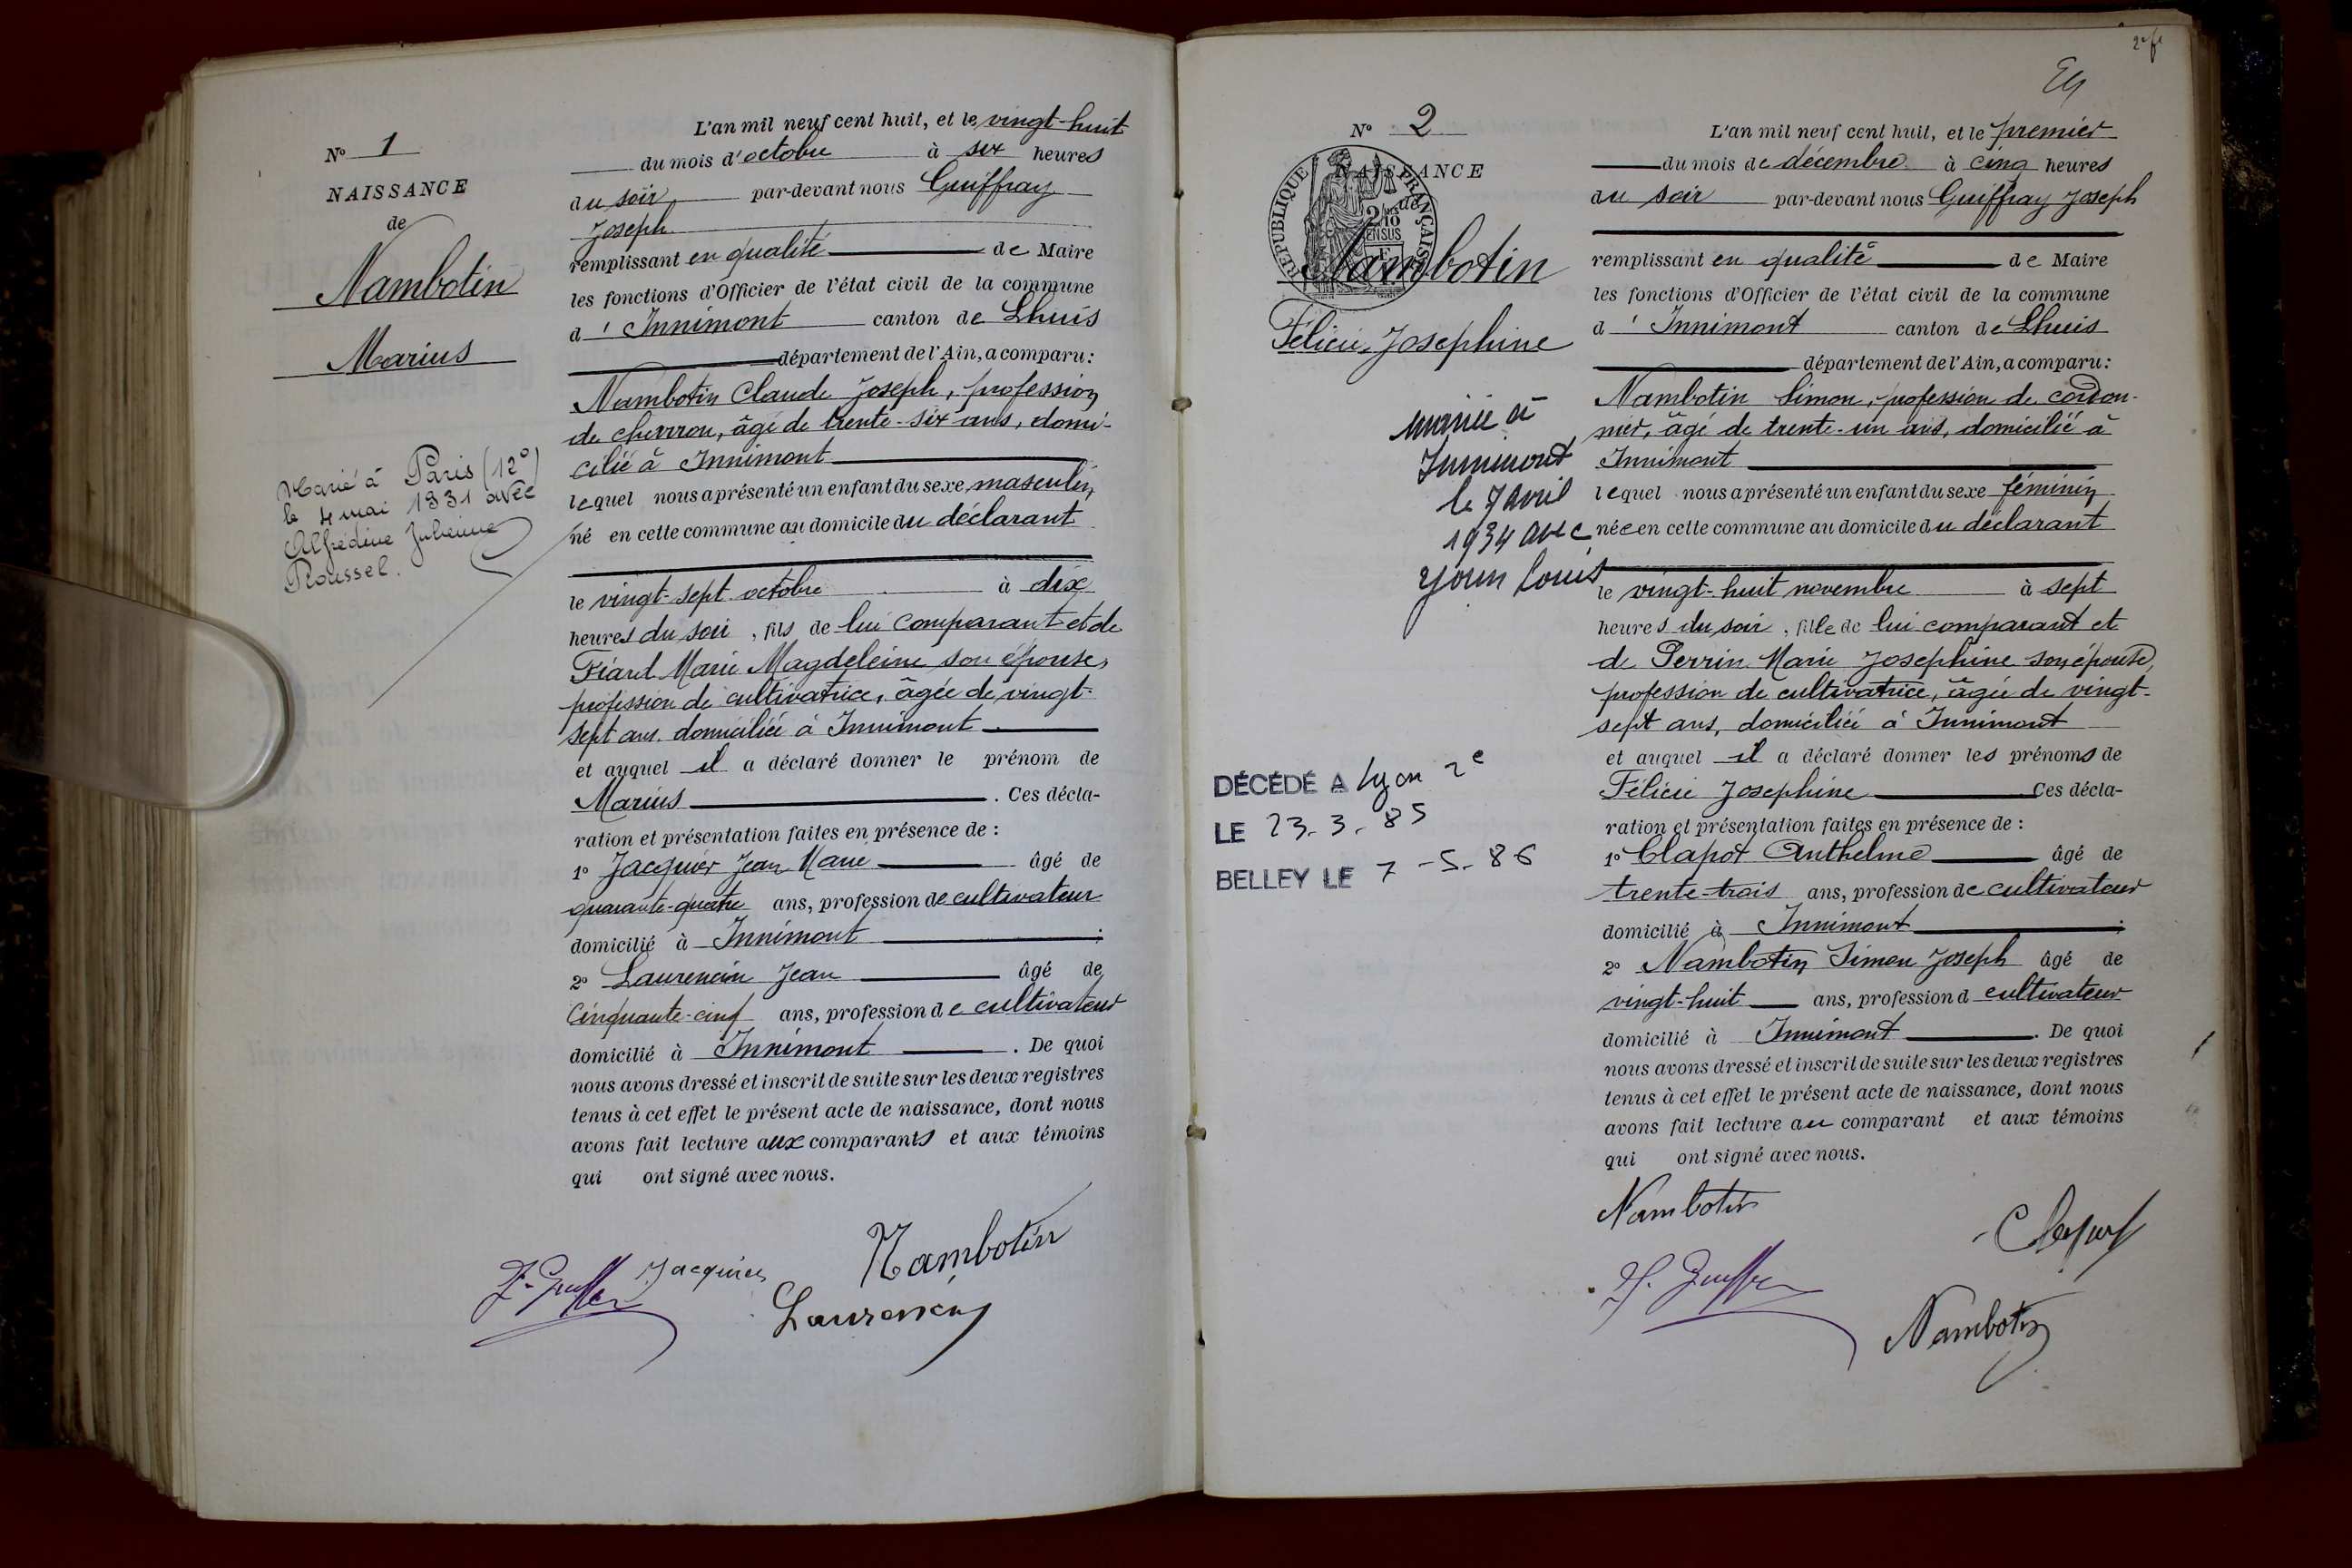 N° 1
NAISSANCE
de
Nambotin
Marius
Marié à Paris (12e)
le 4 mai 1931 avec
Alfrédine Julienne
Roussel.
L'an mil neuf cent huit, et le vingt-huit
du mois d'octobre à six heures
du soir par-devant nous Guiffray
Joseph
remplissant en qualité de Maire
les fonctions d'Officier de l'état civil de la commune
d'Innimont canton de Lhuis
département de l'Ain, a comparu:
Nambotin Claude Joseph, profession
de charron, âgé de trente-six ans, domi-
cilié à Innimont
lequel nous a présenté un enfant du sexe masculin,
né en cette commune au domicile du déclarant
le vingt-sept octobre à dix
heures du soir, fils de lui comparant et de
Fiard Marie Magdeleine son épouse,
profession de cultivatrice, âgée de vingt-
sept ans. domiciliée à Innimont.
et auquel il a déclaré donner le prénom de
Marius. Ces décla-
ration et présentation faites en présence de :
1° Jacquier Jean Marie âgé de
quarante-quatre ans, profession de cultivateur
domicilié à Innimont ;
2° Laurencin Jean âgé de
Cinquante-cinq ans, profession de cultivateur
domicilié à Innimont. De quoi
nous avons dressé et inscrit de suite sur les deux registres
tenus à cet effet le présent acte de naissance, dont nous
avons fait lecture aux comparants et aux témoins
qui ont signé avec nous.
Nambotin
Jacquier
Laurencin
2e ft
N° 2
NAISSANCE
de
RÉPUBLIQUE FRANÇAISE
Nambotin
Félicie Josephine
mariée à
Innimont
le 7 avril
1934 avec
Louis
DÉCÉDÉ A Lyon 2e
LE 23-3-85
BELLEY LE 7-5-86
L'an mil neuf cent huit, et le premier
du mois de décembre à cinq heures
du soir par-devant nous Guiffray Joseph
remplissant en qualité de Maire
les fonctions d'Officier de l'état civil de la commune
d'Innimont canton de Lhuis
département de l'Ain, a comparu:
Nambotin Simon, profession de cordon-
nier, âgé de trente-un ans, domicilié à
Innimont
lequel nous a présenté un enfant du sexe féminin
née en cette commune au domicile du déclarant
le vingt-huit novembre à sept
heures du soir, fille de lui comparant et
de Perrin Marie Josephine son épouse,
profession de cultivatrice, âgée de vingt-
sept ans, domiciliée à Innimont
et auquel il a déclaré donner les prénoms de
Félicie Josephine Ces décla-
ration et présentation faites en présence de :
1° Clapot Anthelme âgé de
trente-trois ans, profession de cultivateur
domicilié à Innimont ;
2° Nambotin Simon Joseph âgé de
vingt-huit ans, profession d cultivateur
domicilié à Innimont. De quoi
nous avons dressé et inscrit de suite sur les deux registres
tenus à cet effet le présent acte de naissance, dont nous
avons fait lecture au comparant et aux témoins
qui ont signé avec nous.
Nambotin
Clapot
Nambotin